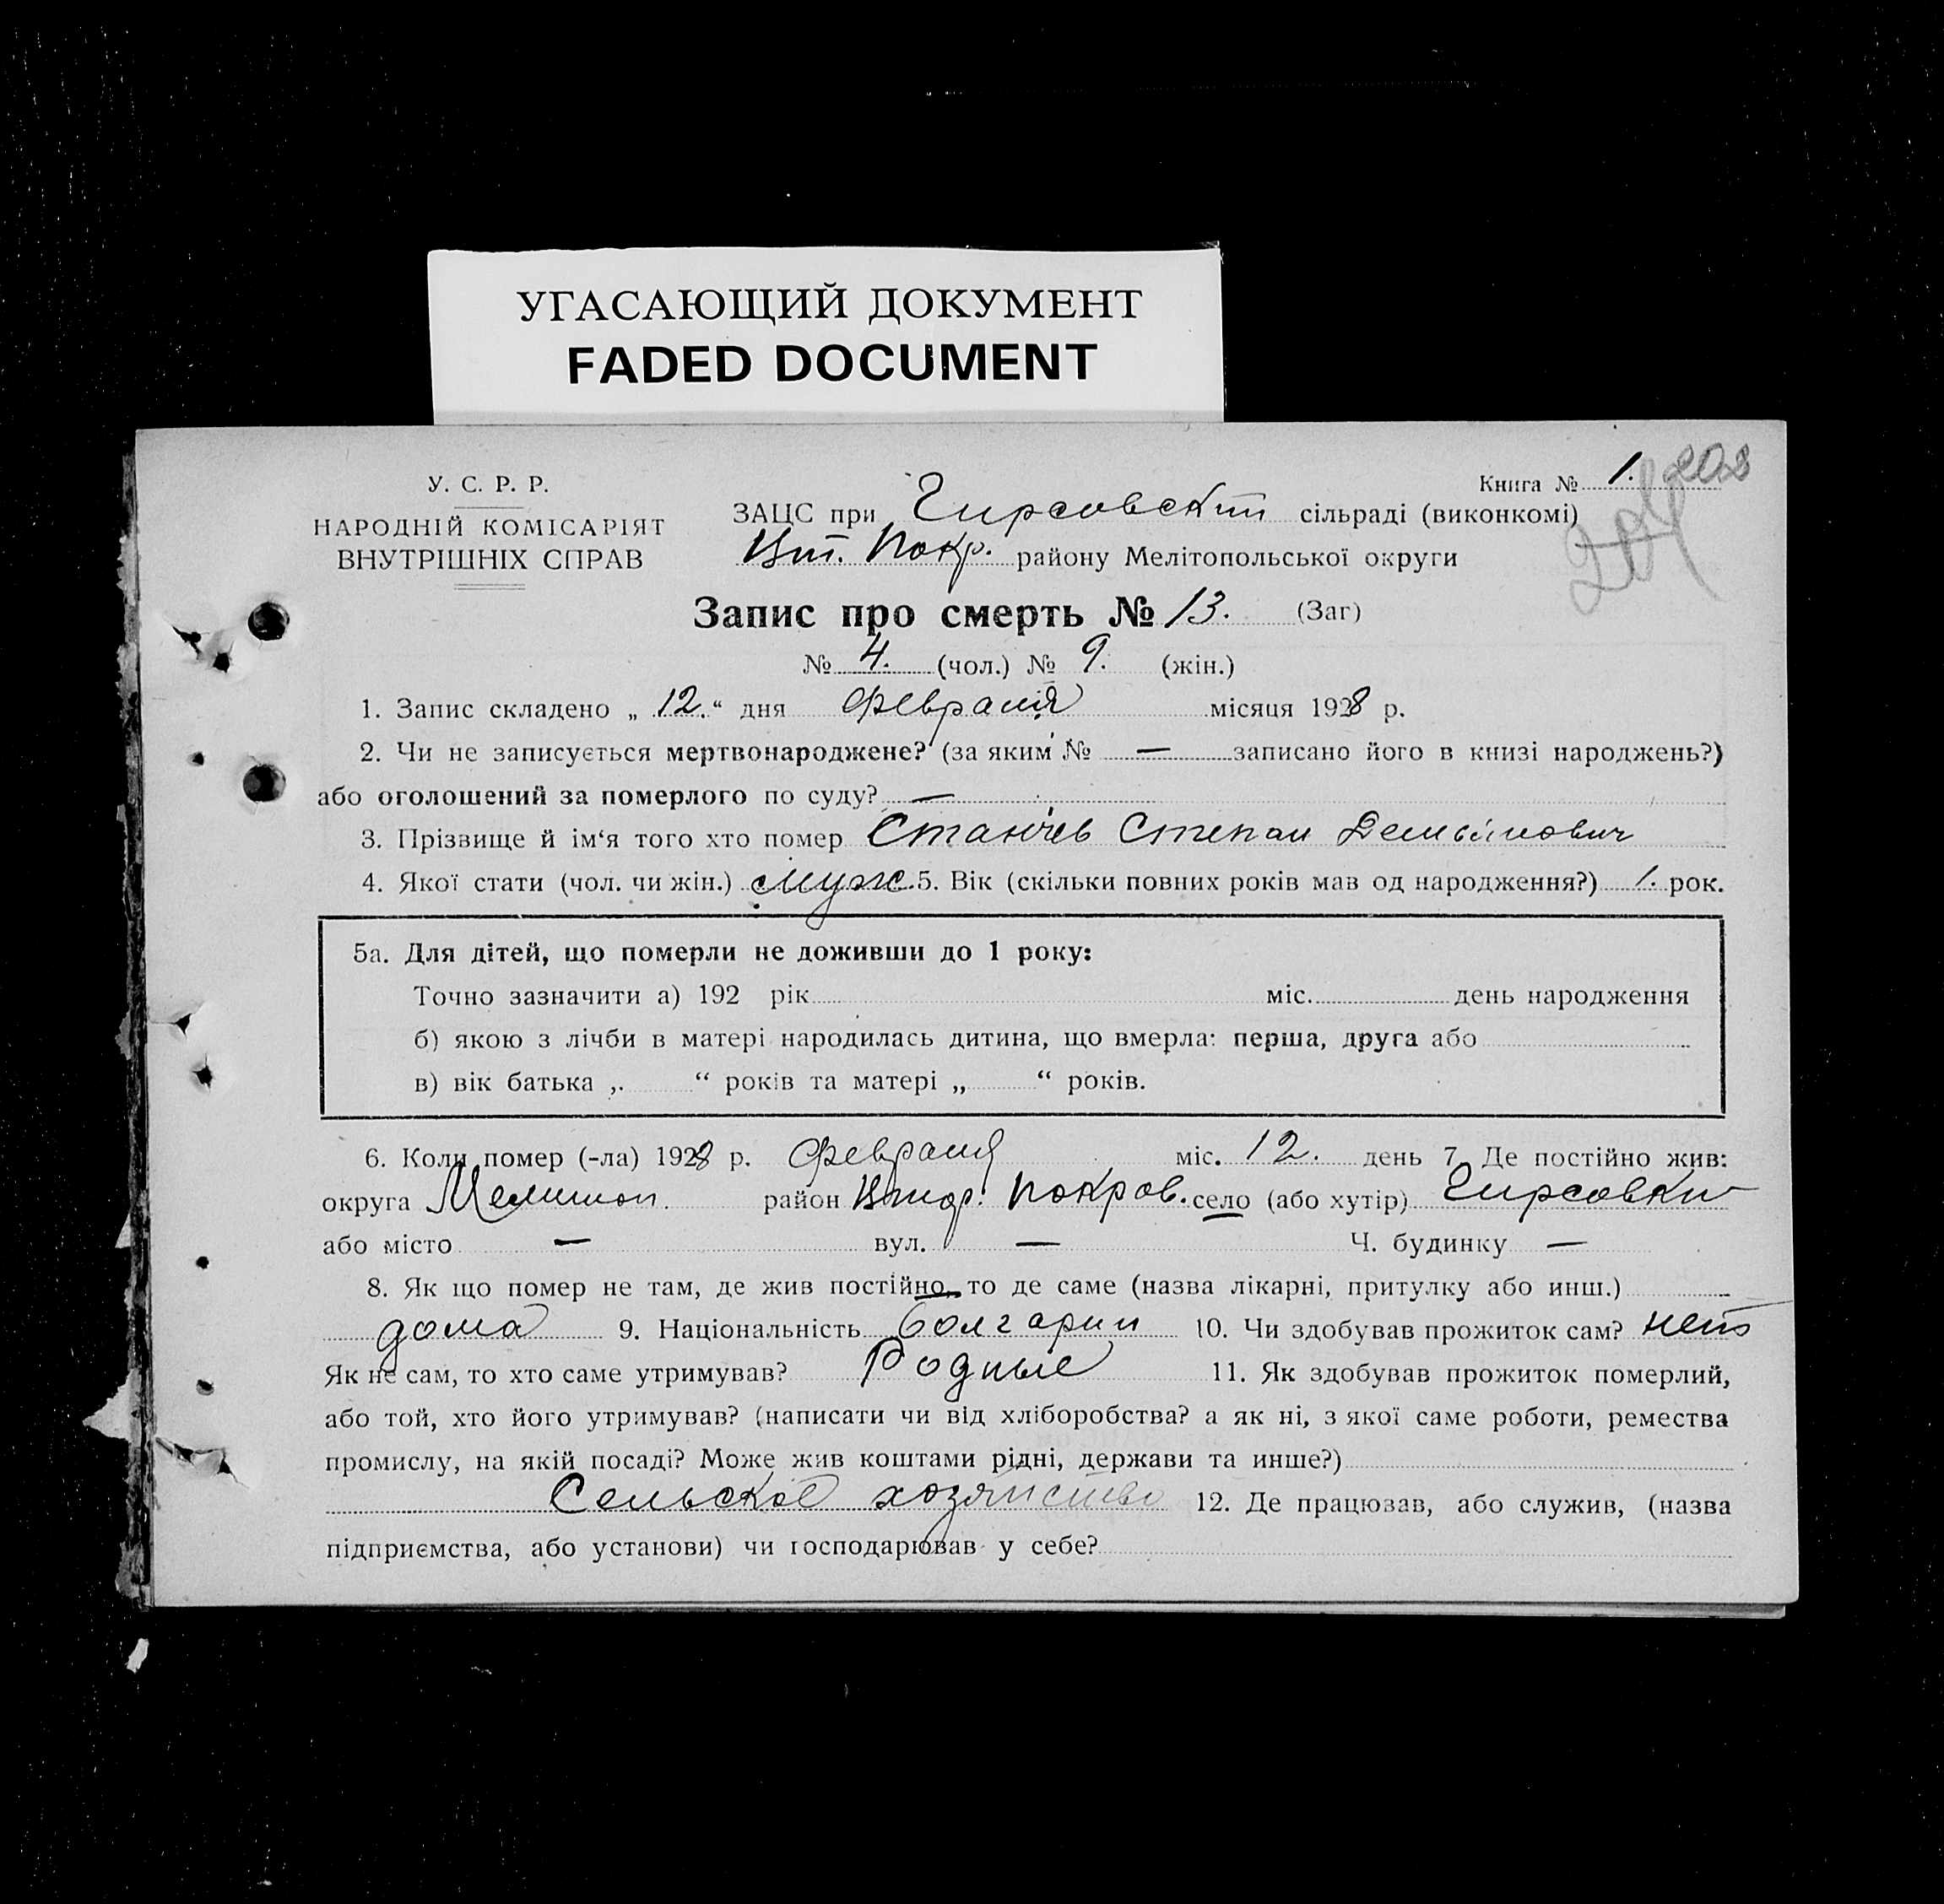 УГАСАЮЩИЙ ДОКУМЕНТ
FADED DOCUMENT
У. С. Р. Р.
НАРОДНІЙ КОМІСАРІЯТ
ВНУТРІШНІХ СПРАВ
Книга № 1. 203
204
ЗАЦС при Гирсовский сільраді (виконкомі)
Цт. Покр. району Мелітопольської округи
Запис про смерть № 13. (Заг)
№ 4. (чол.) № 9. (жін.)
1. Запис складено „ 12. “ дня февраля місяця 1928 р.
2. Чи не записується мертвонароджене? (за яким № — записано його в книзі народжень?)
або оголошений за померлого по суду? —
3. Прізвище й ім‘я того хто помер Станчев Степан Демьянович
4. Якої стати (чол. чи жін.) муж. 5. Вік (скільки повних років мав од народження?) 1. рок.
5а. Для дітей, що померли не доживши до 1 року:
Точно зазначити а) 192 рік міс. день народження
б) якою з лічби в матері народилась дитина, що вмерла: перша, друга або
в) вік батька „ “ років та матері „ “ років.
6. Коли помер (-ла) 1928 р. февраля міс. 12. день 7. Де постійно жив:
округа Мелитоп. район Покров. село (або хутір) Гирсовки
або місто — вул. — Ч. будинку —
8. Як що помер не там, де жив постійно, то де саме (назва лікарні, притулку або инш.)
дома 9. Національність болгарин 10. Чи здобував прожиток сам? нет
Як не сам, то хто саме утримував? Родные 11. Як здобував прожиток померлий,
або той, хто його утримував? (написати чи від хліборобства? а як ні, з якої саме роботи, ремества
промислу, на якій посаді? Може жив коштами рідні, держави та инше?)
Сельское хозяйство 12. Де працював, або служив, (назва
підприємства, або установи) чи господарював у себе?